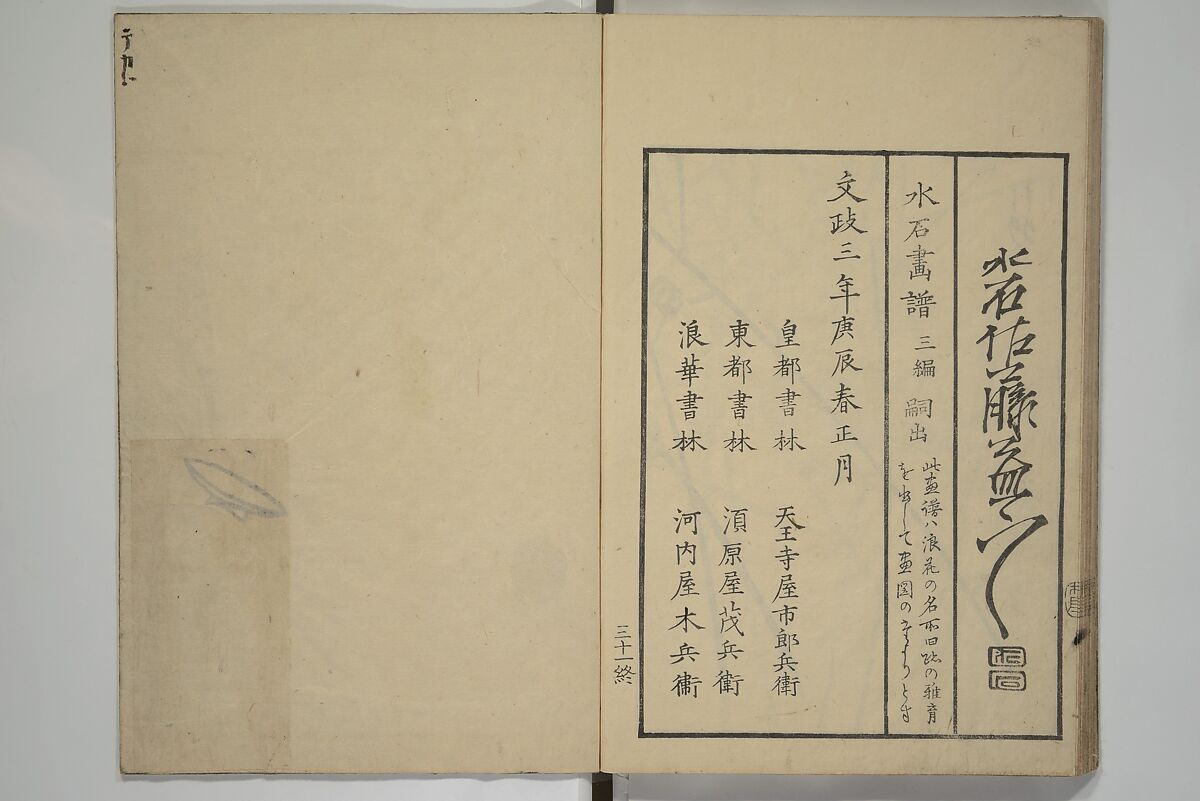 水石佐藤益之
水石畫譜 三編 嗣出
此画譜ハ浪花の名所旧跡の雅音
を出して画図の
文政三年庚辰春正月
皇都書林 天王寺屋市郎兵衛
東都書林 須原屋茂兵衛
浪華書林 河内屋木兵衛
三十一終